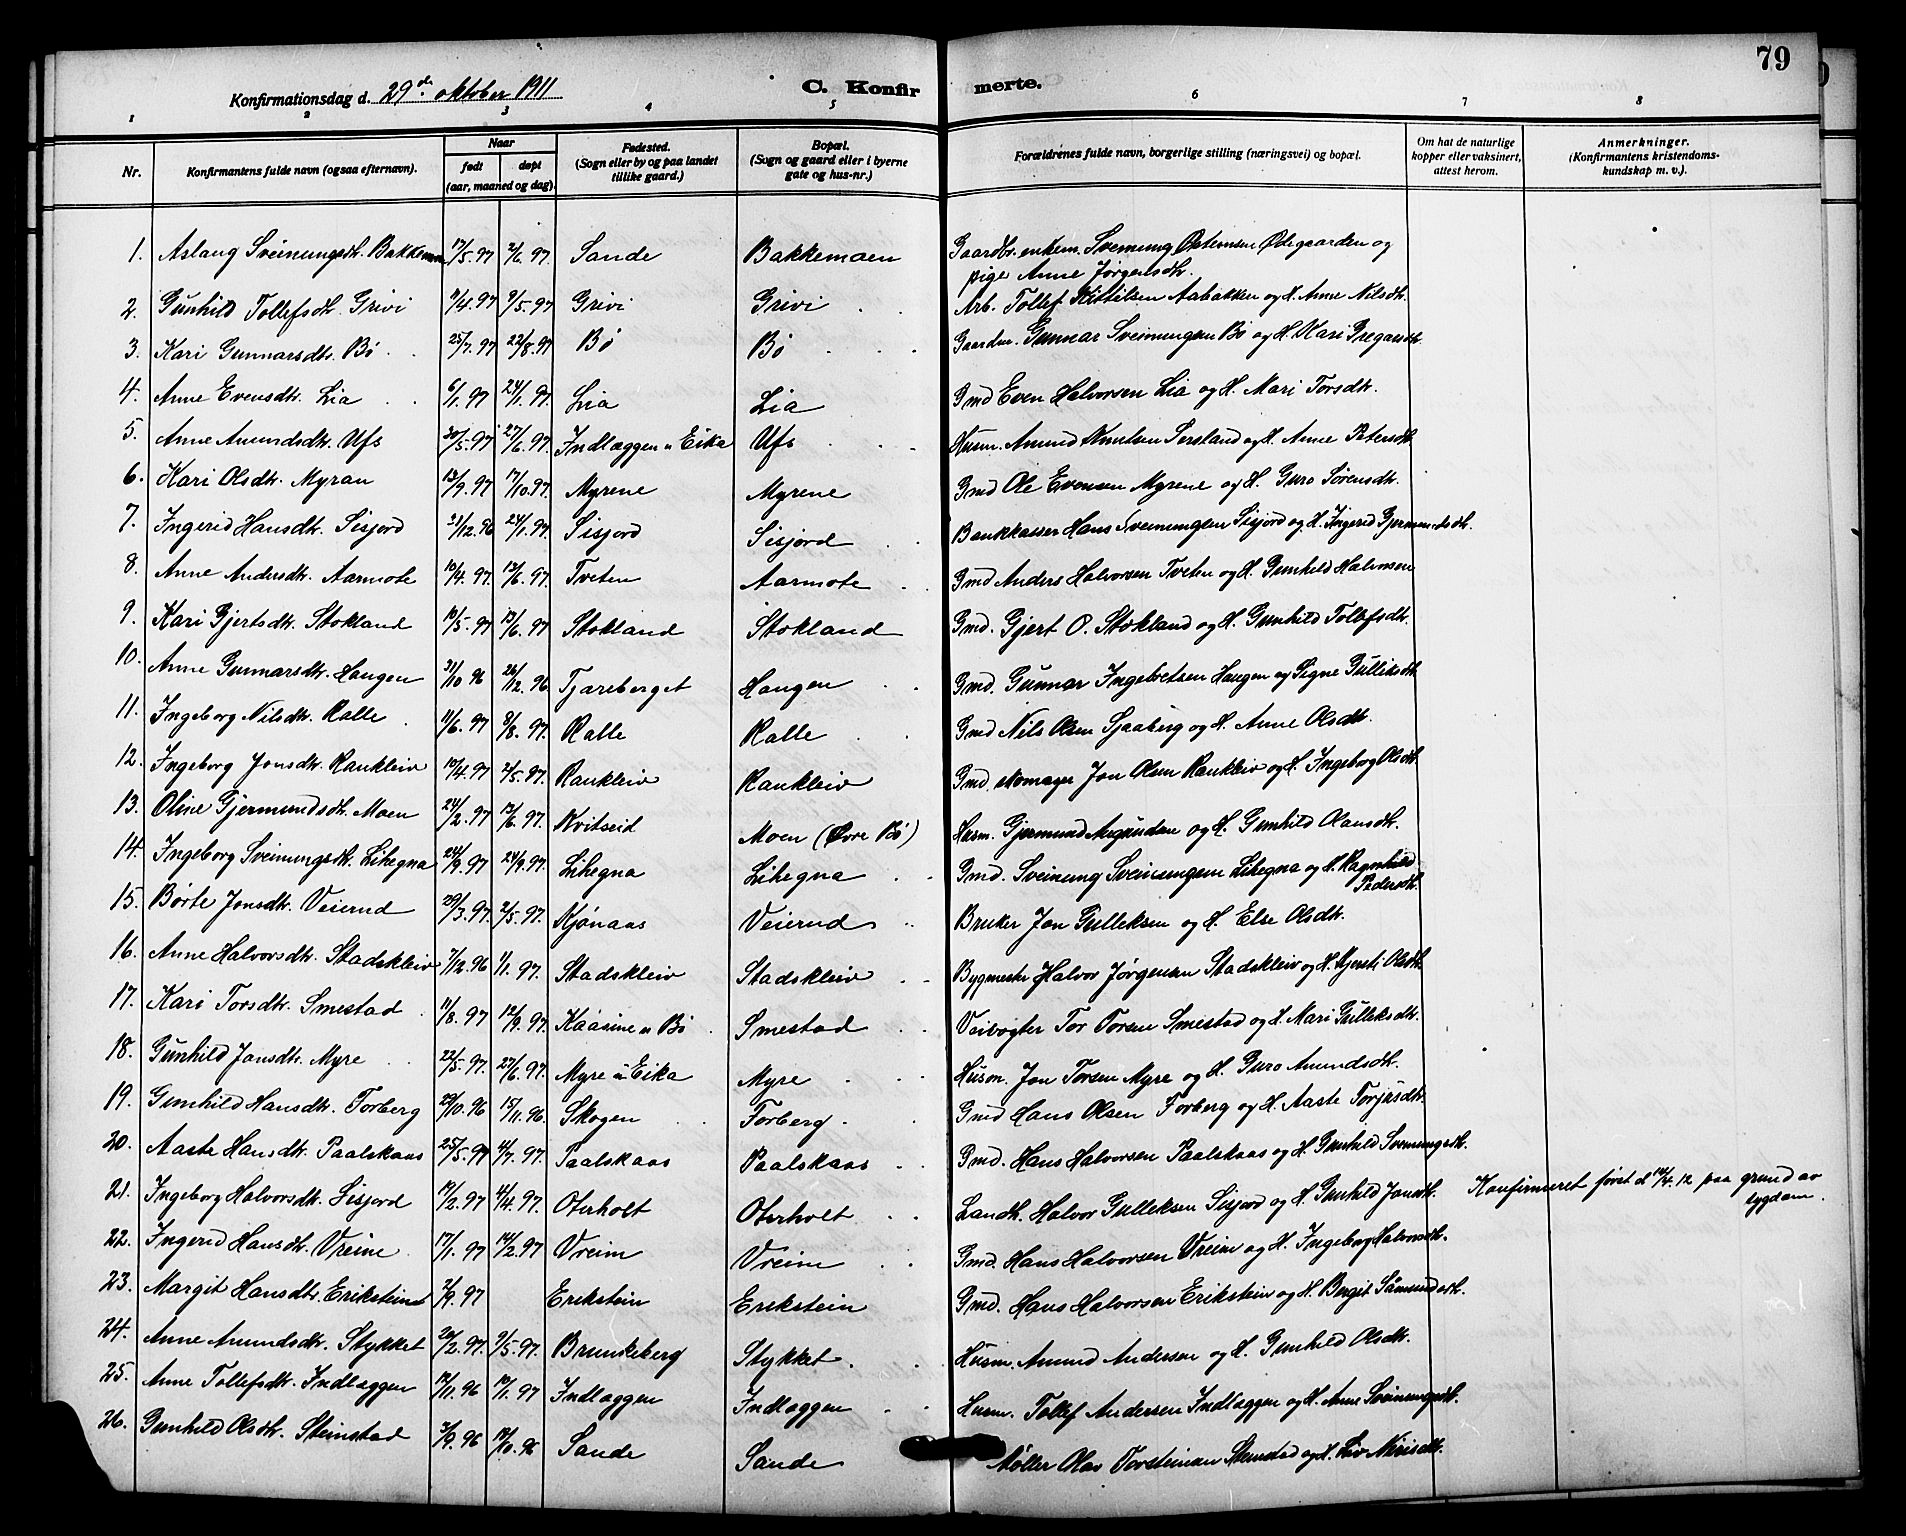 79
Konfirmationsdag d. 29de oktober 1911
C. Konfirmerte.
1 2 3 4 5 6 7 8
Nr. Konfirmantens fulde navn (ogsaa efternavn). Naar født døpt (aar, maaned og dag). Fødested. (Sogn eller by og paa landet tillike gaard.) Bopæl. (Sogn og gaard eller i byerne gate og hus-nr.) Forældrenes fulde navn, borgerlige stilling (næringsvei) og bopæl. Om hat de naturlige kopper eller vaksinert, attest herom. Anmerkninger. (Konfirmantens kristendomskundskap m. v.).
1. Aslaug Sveinungsdtr. Bakkemoen 17/5.97 2/6.97. Sande Bakkemoen Gaardbr. enkem. Sveinung Østensen Ødegaarden og
pige Anne Jørgensdtr.
2. Gunhild Tollefsdtr. Grivi 7/4.97 9/5.97 Grivi Grivi Arb. Tollef Kittilsen Aabakken og H. Anne Nilsdtr.
3. Kari Gunnarsdtr. Bø 25/7.97 22/8.97 Bø Bø Gaardm. Gunnar Sveinungsen Bø og H. Kari Gregarsdtr.
4. Anne Evensdtr. Lia 6/1.97 24/1.97. Lia Lia Gmd Even Halvorsen Lia og H. Mari Torsdtr.
5. Anne Amundsdtr. Ufs 30/5.97 27/6.97. Indlæggen u Eika Ufs Husm. Amund Knutsen Sersland og H. Anne Petersdtr.
6. Kari Olsdtr. Myran 13/9.97 17/10.97. Myrene Myrene Gmd Ole Evensen Myrene og H. Guro Sørensdtr.
7. Ingerid Hansdtr. Sisjord 21/12.96 24/1.97. Sisjord Sisjord Bankkasser Hans Sveinungsen Sisjord og H. Ingerid Gjermundsdtr.
8. Anne Andersdtr. Aarmote 10/4.97. 13/6.97. Tveten Aarmote Gmd Anders Halvorsen Tveten og H. Gunhild Halvorsen
9. Kari Gjertsdtr. Stokland 10/5.97 13/6.97 Stokland Stokland Gmd. Gjert O. Stokland og H. Gunhild Tollefsdtr.
10. Anne Gunnarsdtr. Haugen 31/10 96 26/12.96. Tjæreberget Haugen Gmd. Gunnar Ingebretsen Haugen og Signe Gulliksdtr
11. Ingeborg Nilsdtr. Ralle 11/6.97 8/8.97. Ralle Ralle Gmd Nils Olsen Sjaaberg og H. Anne Olsdtr.
12. Ingeborg Jonsdtr. Raukleiv 10/4.97 2/5.97. Raukleiv Raukleiv Gmd. skomager Jon Olsen Raukleiv og H. Ingeborg Olsdtr.
13. Oline Gjermundsdtr. Moen 24/2.97 13/6.97. Kvitseid Moen (Øvre Bø) Husm. Gjermund Augundsen og H. Gunhild Olavsdtr.
14. Ingeborg Sveinungsdtr. Lihegna 24/9.97 24/9.97. Lihegna Lihegna Gmd. Sveinung Sveinungsen Lihegna og H. Ragnhild
Pedersdtr.
15. Børte Jonsdtr. Veierud 29/3.97. 2/5.97. Kjønaas Veierud Bruker Jon Gulleksen og H. Else Olsdtr.
16. Anne Halvorsdtr. Stadskleiv 7/12.96 1/1.97. Stadskleiv Stadskleiv Bygmester Halvor Jørgensen Stadskleiv og H. Kjersti Olsdtr.
17. Kari Torsdtr. Smestad 11/8.97 12/9.97. Kaasine u Bø Smestad Veivogter Tor Torsen Smestad og H. Mari Gulleksdtr.
18. Gunhild Jonsdtr. Myre 22/5.97. 27/6.97. Myre u Eika Myre Husm. Jon Torsen Myre og H. Guro Amundsdtr.
19. Gunhild Hansdtr. Forberg 29/10.96 15/11.96. Skogen Forberg Gmd Hans Olsen Forberg og H. Aaste Torjusdtr.
20. Aaste Hansdtr. Paalskaas 25/5.97 4/7.97. Paalskaas Paalskaas Gmd. Hans Halvorsen Paalskaas og H. Gunhild Sveinungsdtr.
21. Ingeborg Halvorsdtr. Sisjord 19/2.97 4/4.97. Oterholt Oterholt Landh. Halvor Gulleksen Sisjord og H. Gunhild Jonsdtr. Konfirmeret først d 14/4.12 paa grund av
sygdom.
22. Ingerid Hansdtr. Vreim 17/1.97 14/2.97 Vreim Vreim Gmd. Hans Halvorsen Vreim og H. Ingeborg Halvorsdtr.
23. Margit Hansdtr. Erikstein 2/9.97 Erikstein Erikstein Gmd. Hans Halvorsen Erikstein og H. Bergit Såmundsdtr.
24. Anne Amundsdtr. Stykket 20/2.97. 9/5.97. Brunkeberg Stykket Husm. Amund Andersen og H. Gunhild Olsdtr.
25. Anne Tollefsdtr. Indlæggen 12/11.96 10/1.97 Indlæggen Indlæggen Husm. Tollef Andersen Indlæggen og H. Anne Sveinungsdtr.
26. Gunhild Olsdtr. Steinstad 3/9.96 18/10.96 Sande Sande Møller Olav Torsteinsen Steinstad og H. Liv Nirisdtr.